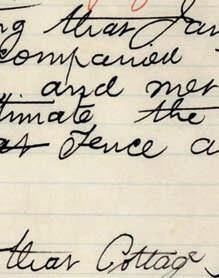 that Jan
companied
and met
timate the
Fence a
that Cottage